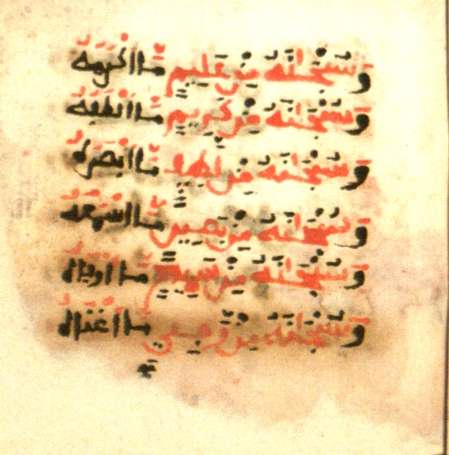 وَسُبْحَانَهُ مِنْ عَلِيمٍ مَا اكْرَمَهُ
وَسُبْحَانَهُ مِنْ كَرِيمٍ مَا الْطَفَهُ
وَسُبْحَانَهُ مِنْ لَطِيفٍ مَا ابْصَرَهُ
وَسُبْحَانَهُ مِنْ بَصِيرٍ مَا اسْمَعَهُ
وَسُبْحَانَهُ مِنْ سَمِيعٍ مَا اوْفَاهُ
وَسُبْحَانَهُ مِنْ وَفِيٍّ مَا اغْنَاهُ